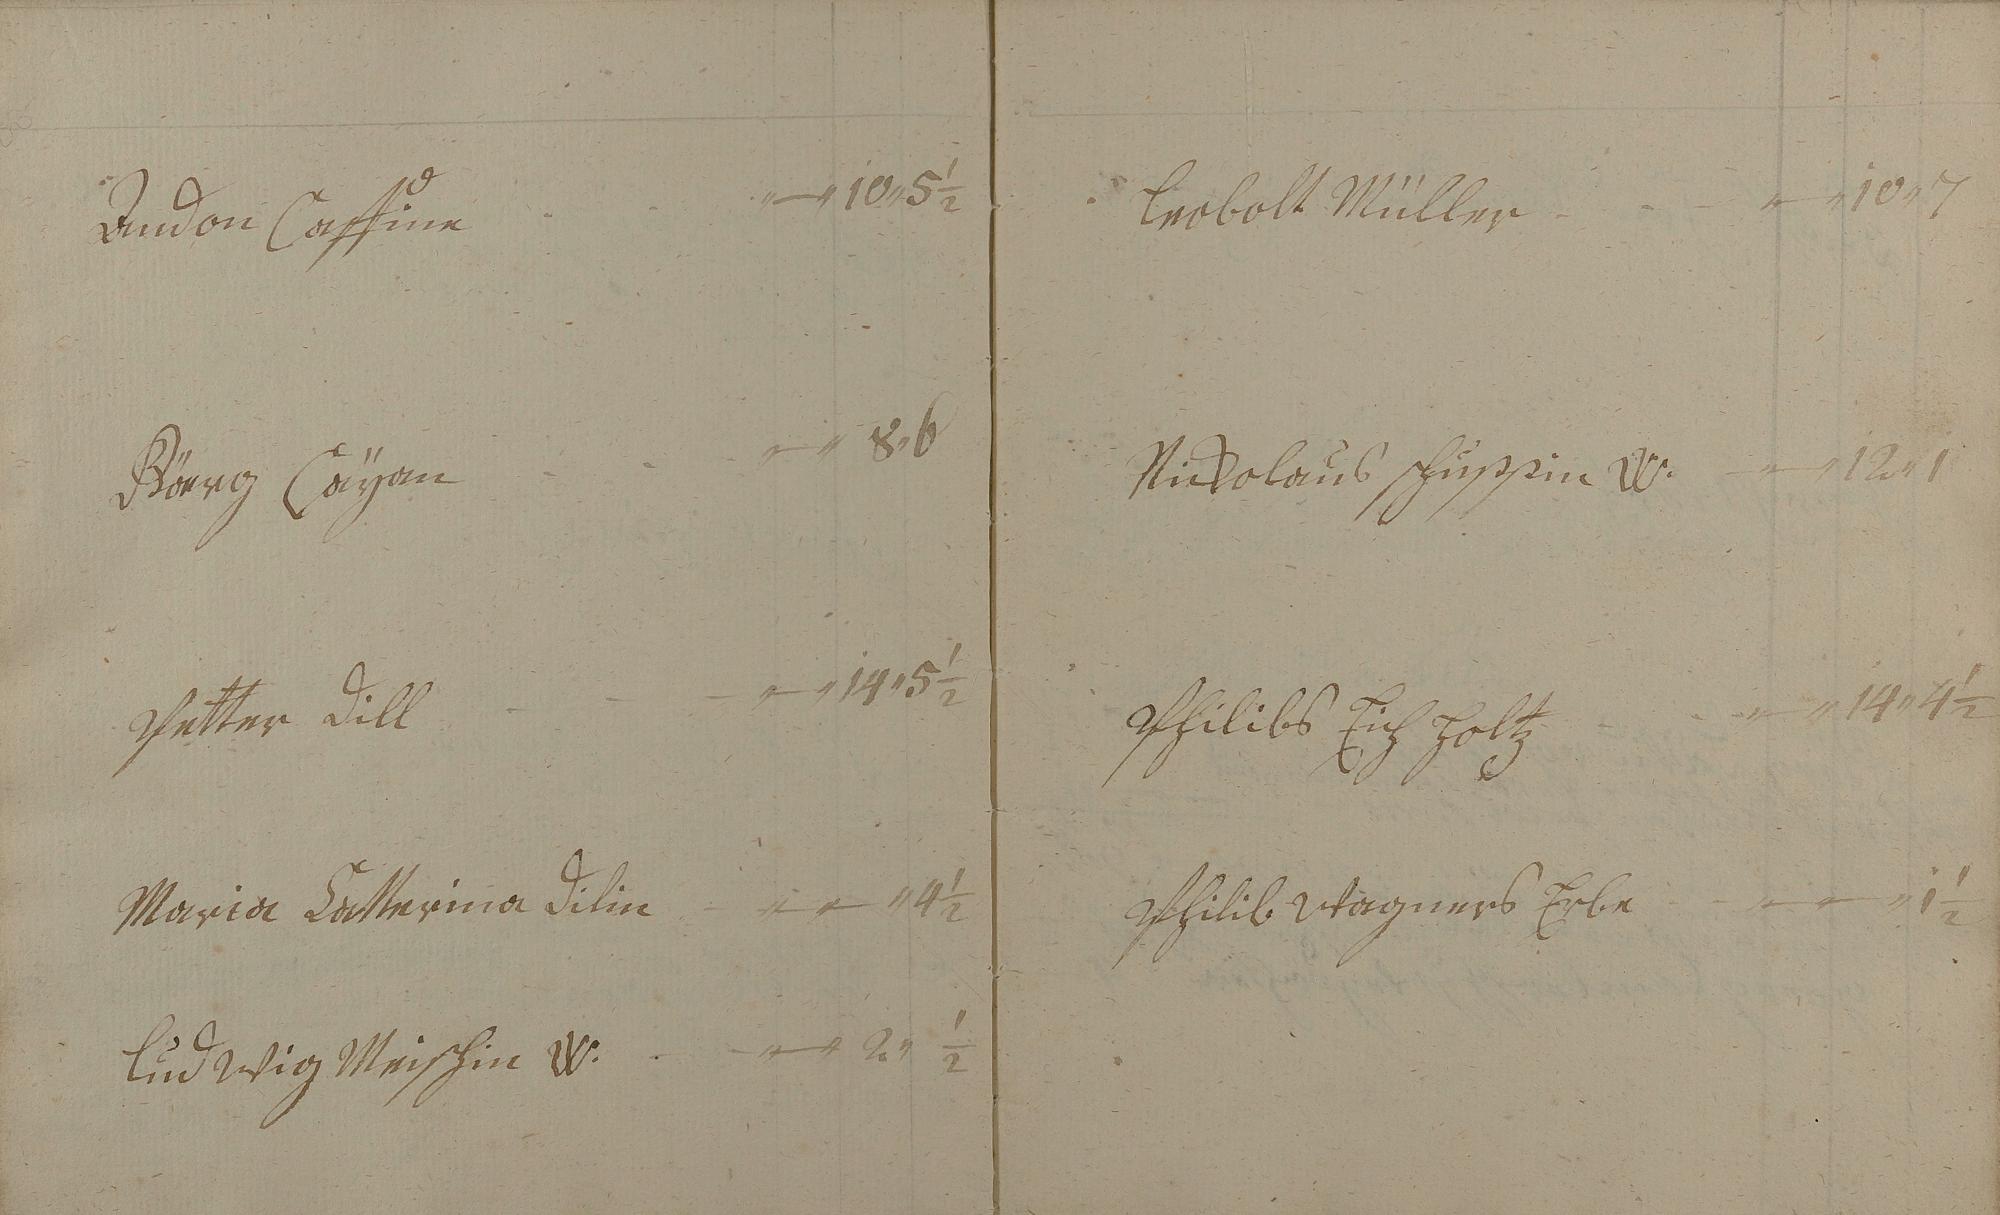 Andon Caffine „—„ 10„ 5 1/2
Görg Cäÿan „—„ 8„ 6
Petter Dill „—„ 14„ 5 1/2
Maria Catterina Dilin „—„— „ 4 1/2
Ludwig Meischin W. „—„ 2„ 1/2
Leobolt Müller „—„ 10„ 7
Nickolaus W. „—„ 12„ 1
Philibs Eich holtz „—„ 14„ 4 1/2
Philib Wagners Erbe „—„— „ 1 1/2